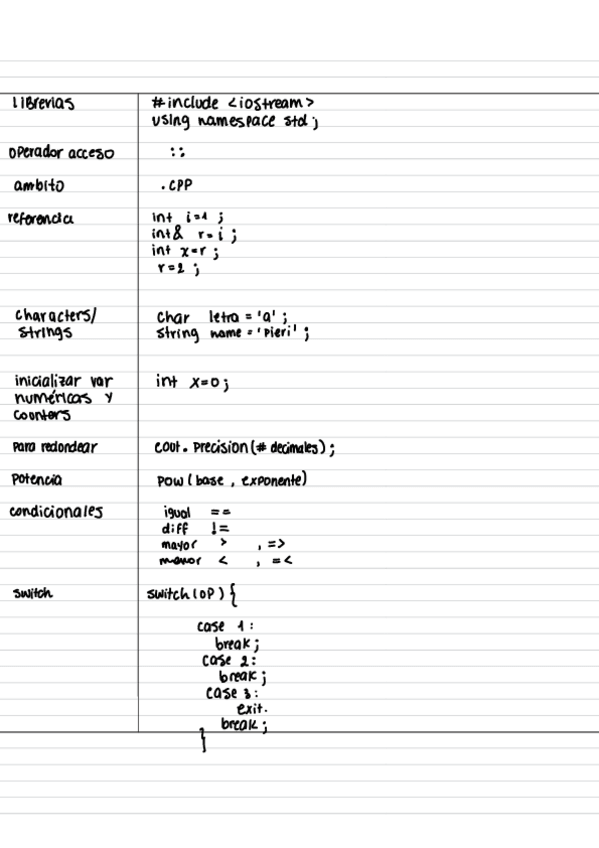 librerias #include <iostream>
using namespace std;
operador acceso ::
ambito .CPP
referencia int i=1 ;
int& r=i ;
int x=r ;
r=2 ;
characters/ char letra = 'a' ;
strings string name = 'Pieri' ;
inicializar var int x=0;
numéricas y
counters
para redondear cout.precision(# decimales);
potencia pow(base , exponente)
condicionales igual ==
diff !=
mayor > , =>
menor < , =<
switch switch(op){
case 1:
break;
case 2:
break;
case 3:
exit.
break;
}